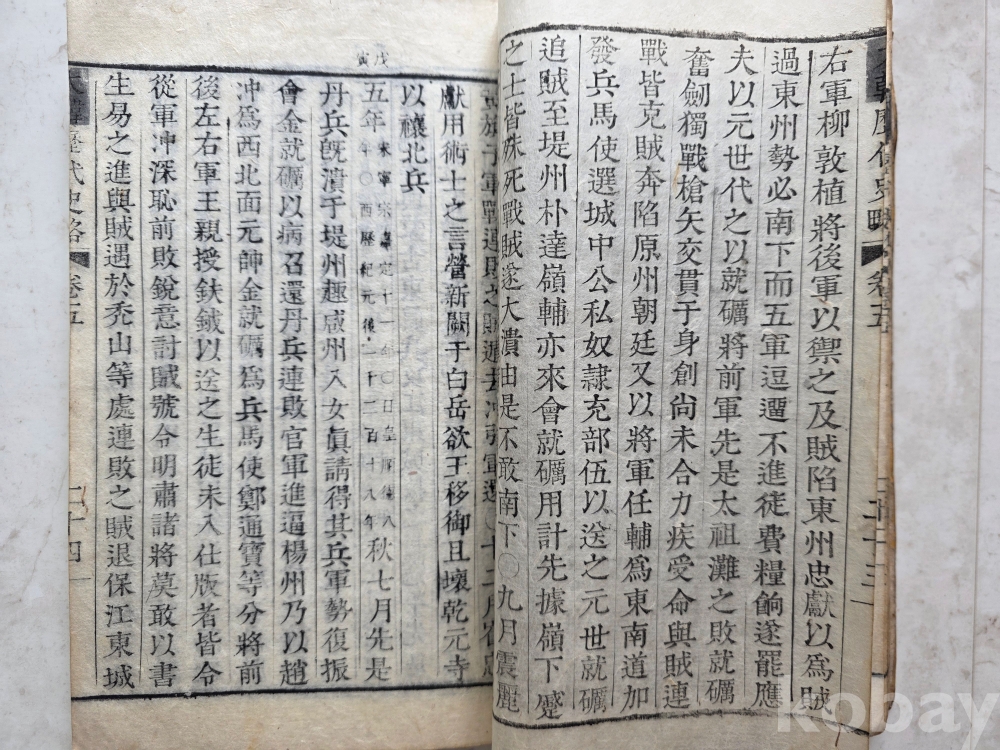 右軍柳敦植將後軍以禦之及賊陷東州忠獻以爲賊
過東州勢必南下而五軍逗遛不進徒費糧餉遂罷應
夫以元世代之以就礪將前軍先是太祖灘之敗就礪
奮劒獨戰槍矢交貫于身創尚未合力疾受命與賊連
戰皆克賊奔陷原州朝廷又以將軍任輔爲東南道加
發兵馬使選城中公私奴隷充部伍以送之元世就礪
追賊至堤州朴達嶺輔亦來會就礪用計先據嶺下蹙
之士皆殊死戰賊遂大潰由是不敢南下〇九月震麗
子軍戰連敗之賊遁去冲引軍還〇十二月
獻用術士之言營新闕于白岳欲王移御且壞乾元寺
以禳北兵
戊寅
五年
宋寧宗嘉定十一年〇日皇順德八
年〇西歷紀元後一千二百十八年
秋七月先是
丹兵旣潰于堤州趣咸州入女眞請得其兵軍勢復振
會金就礪以病召還丹兵連敗官軍進逼楊州乃以趙
冲爲西北面元帥金就礪爲兵馬使鄭通寶等分將前
後左右軍王親授鈇鉞以送之生徒未入仕版者皆令
從軍冲深恥前敗銳意討賊號令明肅諸將莫敢以書
生易之進與賊遇於禿山等處連敗之賊退保江東城
歷代史略 卷五 二十四
kobay